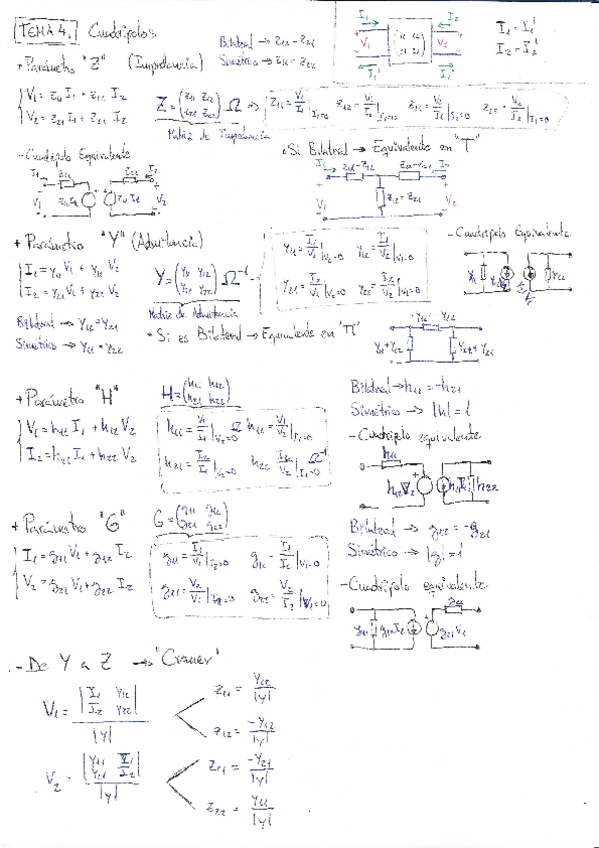 TEMA 4. Cuadripolos
Bilateral → Z12 = Z21
Simétrico → Z11 = Z22
I1 I2
V1 V2
I1' I2'
I1 = I1'
I2 = I2'
+ Parámetro "Z" (Impedancia)
V1 = Z11 I1 + Z12 I2
V2 = Z21 I1 + Z22 I2
Z = (Z11 Z12 Z21 Z22) Ω ⇒
Matriz de Impedancia
Z11 = V1/I1 | I2=0
- Cuadripolo Equivalente
• Si Bilateral → Equivalente en "T"
I1 Z11 - Z12 I2
V1 Z12 = Z21 V2
+ Parámetro "Y" (Admitancia)
I1 = Y11 V1 + Y12 V2
I2 = Y21 V1 + Y22 V2
Y = (Y11 Y12 Y21 Y22) Ω⁻¹
Matriz de Admitancia
Y11 = I1/V1 | V2=0 Y12 = I1/V2 | V1=0
Y21 = I2/V1 | V2=0 Y22 = I2/V2 | V1=0
- Cuadripolo Equivalente
Bilateral → Y12 = Y21
Simétrico → Y11 = Y22
• Si es Bilateral → Equivalente en "Π"
-Y12
Y11 + Y12
+ Parámetro "H"
H = (h11 h12 h21 h22)
V1 = h11 I1 + h12 V2
I2 = h21 I1 + h22 V2
h11 = V1/I1 | V2=0 Ω h12 = V1/V2 | I1=0
h21 = I2/I1 | V2=0 h22 = I2/V2 | I1=0 Ω⁻¹
Bilateral → h12 = -h21
Simétrico → |h| = 1
- Cuadripolo equivalente
h11
h12 V2 h21 I1 h22
+ Parámetro "G"
G = (g11 g12 g21 g22)
I1 = g11 V1 + g12 I2
V2 = g21 V1 + g22 I2
g11 = I1/V1 | I2=0 g12 = I1/I2 | V1=0
g21 = V2/V1 | I2=0 g22 = V2/I2 | V1=0
Bilateral → g12 = -g21
Simétrico → |g| = 1
- Cuadripolo equivalente
g22
g11 g12 I2 g21 V1
- De Y a Z → "Cramer"
V1 = |I1 Y12 I2 Y22| / |Y|
Z11 = Y22/|Y|
Z12 = -Y12/|Y|
V2 = |Y11 I1 Y21 I2| / |Y|
Z21 = -Y21/|Y|
Z22 = Y11/|Y|